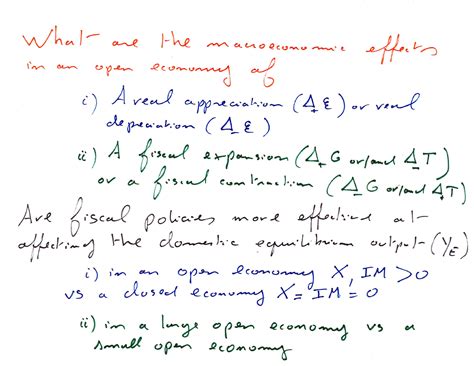 What are the macroeconomic effects
in an open economy of
i) A real appreciation (Δ₊ε) or real
depreciation (Δ₋ε)
ii) A fiscal expansion (Δ₊G or/and Δ₋T)
or a fiscal contraction (Δ₋G or/and Δ₊T)
Are fiscal policies more effective at
affecting the domestic equilibrium output (Y_E)
i) in an open economy X, IM > 0
vs a closed economy X = IM = 0
ii) in a large open economy vs a
small open economy